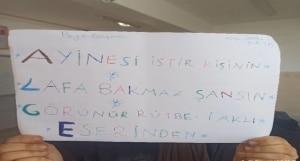 AYİNESİ İŞTİR KİŞİNİN
LAFA BAKMAZ ŞANSIN
GÖRÜNÜR RÜTBE-İ AKLI
ESERİNDEN